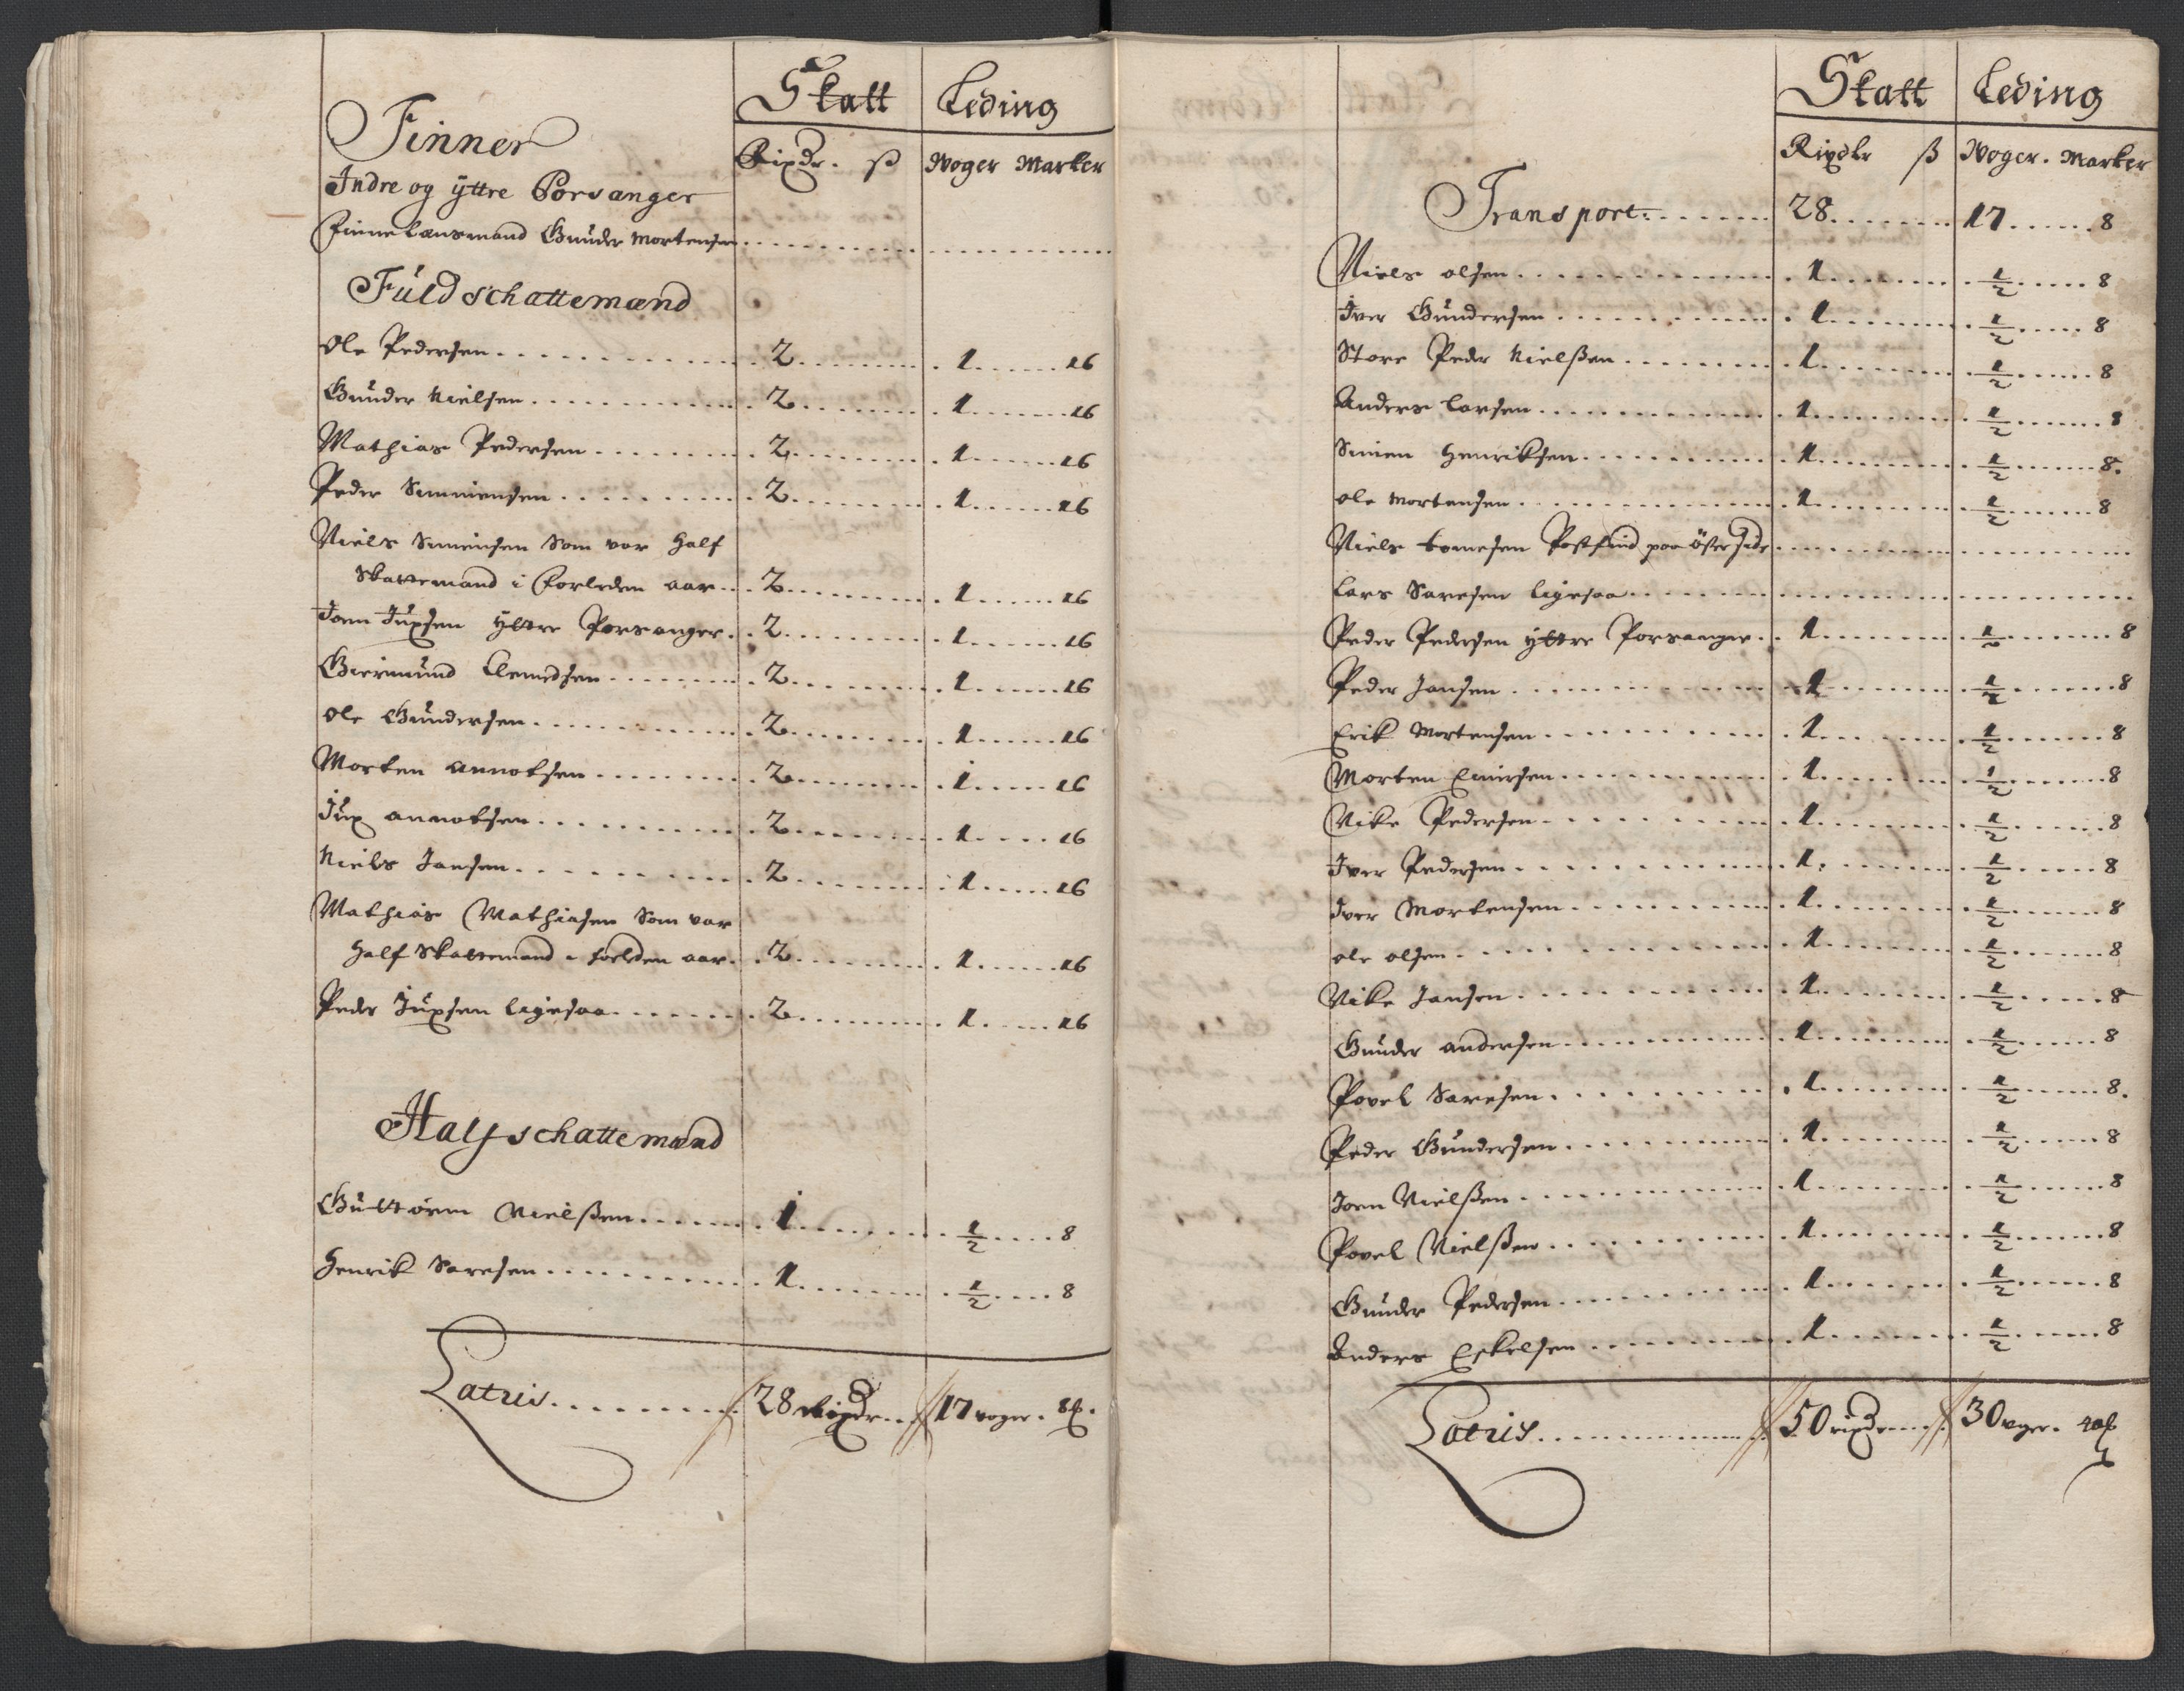 Skatt Leding
Finner
Rixdr. ß Woger Marker
Indre og ÿttre Porsanger
Finne Lænsmand Gunder Mortensen
Fuldschattemænd
Ole Pedersen 2 1 16
Gunder Nielsen 2 1 16
Mathias Pedersen 2 1 16
Peder Simmensen 2 1 16
Niels Simensen Som var Half
Skattemand i Forleden aar 2 1 16
Joen Juxsen yttre Porsanger 2 1 16
Giermund Clemedsen 2 1 16
Ole Gundersen 2 1 16
Morten Annotsen 2 1 16
Jux Annotsen 2 1 16
Niels Jansen 2 1 16
Mathias Mathiasen Som var
Half Skattemand i forleden aar 2 1 16
Peder Juxsen ligesaa 2 1 16
Halfschattemænd
Guttorm Nielßen 1 1/2 8
Henrik Saresen 1 1/2 8
Latris 28 Rixdr 17 woger. 8
Skatt Leding
Rixdlr ß Woger. Marker
Transport 28 17 8
Niels olsen 1 1/2 8
Iver Gundersen 1 1/2 8
Store Peder Nielßen 1 1/2 8
Anders Larsen 1 1/2 8
Simen Henriksen 1 1/2 8.
ole Mortensen 1 1/2 8
Niels Tomesen Postfind paa öster side
Lars Saresen ligesaa
Peder Pedersen yttre Porsanger 1 1/2 8
Peder Jansen 1 1/2 8
Erik Mortensen 1 1/2 8
Morten Einersen 1 1/2 8
Nike Pedersen 1 1/2 8
Iver Pedersen 1 1/2 8
Iver Mortensen 1 1/2 8
ole olsen 1 1/2 8
Nike Jansen 1 1/2 8
Gunder andersen 1 1/2 8
Povel Saresen 1 1/2 8.
Peder Gundersen 1 1/2 8
Joen Nielßen 1 1/2 8
Povel Nielßen 1 1/2 8
Gunder Pedersen 1 1/2 8
Anders Eskelsen 1 1/2 8
Latris 50 rixdr 30 wger.